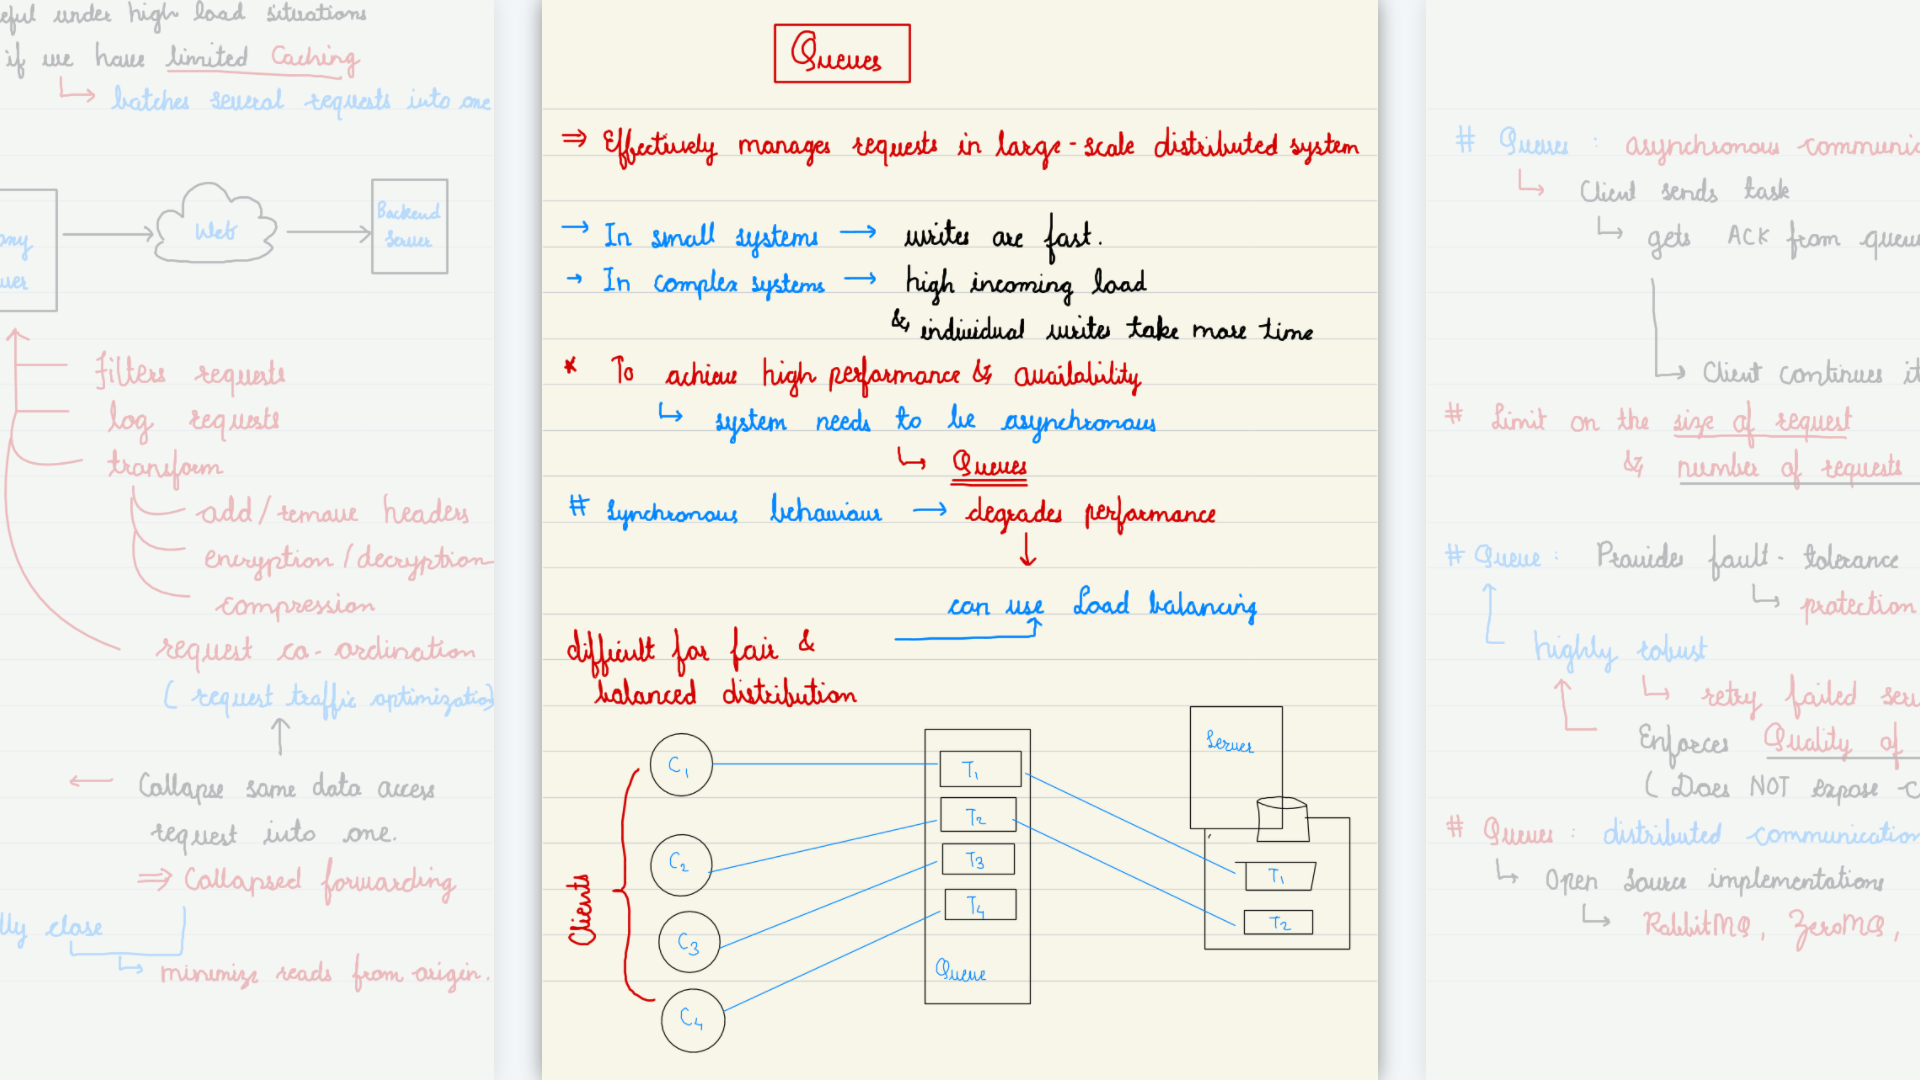 eful under high load situations
if we have limited Caching
batches several requests into one
Web
Backend
Server
Filters requests
log requests
transform
add / remove headers
encryption / decryption
compression
request co-ordination
( request traffic optimization
Collapse same data access
request into one.
⇒ Collapsed forwarding
lly close
minimize reads from origin.
Queues
⇒ Effectively manages requests in large-scale distributed system
→ In small systems → writes are fast.
→ In complex systems → high incoming load
& individual writes take more time
* To achieve high performance & availability
↳ system needs to be asynchronous
↳ Queues
# Synchronous behaviour → degrades performance
can use Load balancing
difficult for fair &
balanced distribution
Clients
C1
C2
C3
C4
T1
T2
T3
T4
Queue
Server
T1
T2
# Queues : asynchronous communic
↳ Client sends task
↳ gets ACK from queue
Client continues it
# Limit on the size of request
& number of requests
# Queue : Provides fault-tolerance
↳ protection
highly robust
↳ retry failed ser
Enforces Quality of
( Does NOT expose c
# Queues : distributed communication
↳ Open source implementations
↳ RabbitMQ, ZeroMQ,